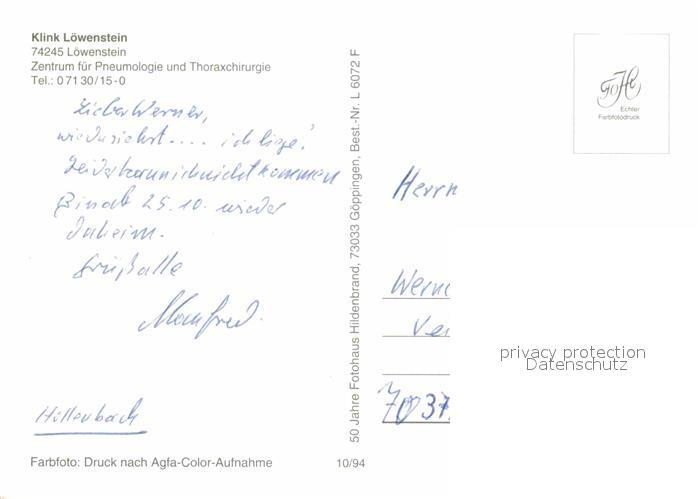 Klink Löwenstein
74245 Löwenstein
Zentrum für Pneumologie und Thoraxchirurgie
Tel.: 0 71 30/15-0
Lieber Werner,
wie du siehst .... ich liege!
Leider kann ich nicht kommen
Bin ab 25.10. wieder
daheim.
Grüß alle
Manfred.
Hollenbach
Farbfoto: Druck nach Agfa-Color-Aufnahme
10/94
50 Jahre Fotohaus Hildenbrand, 73033 Göppingen, Best.-Nr. L 6072 F
Echter
Farbfotodruck
Herrn
Wern
Ve
7037
privacy protection
Datenschutz